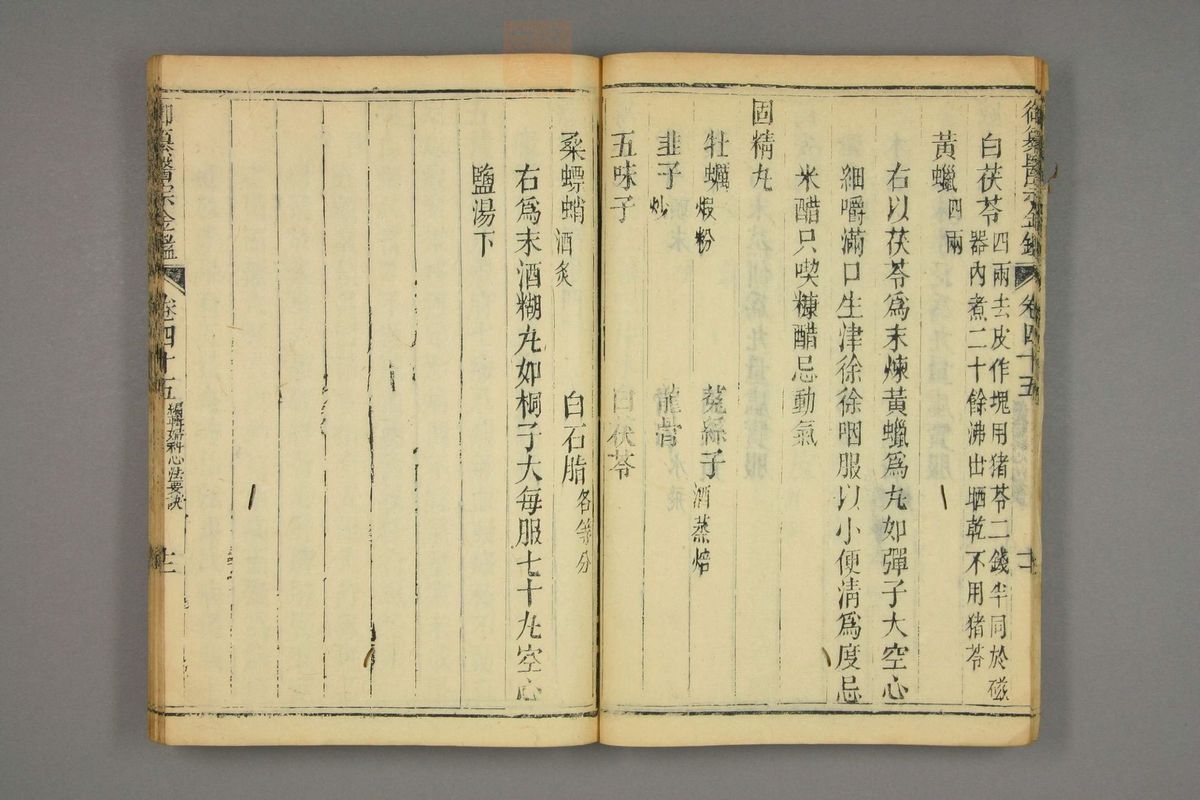 御纂醫宗金鑑 卷四十五
白茯苓四兩去皮作塊用猪苓二錢半同於磁
器內煮二十餘沸出晒乾不用猪苓
黃蠟四兩
右以茯苓爲末煉黃蠟爲丸如彈子大空心
細嚼滿口生津徐徐咽服以小便清爲度忌
米醋只喫糠醋忌動氣
固精丸
牡蠣煆粉 菟絲子酒蒸焙
韭子炒 龍骨
五味子 白茯苓
桑螵蛸酒炙 白石脂各等分
右爲末酒糊丸如桐子大每服七十丸空心
鹽湯下
御纂醫宗金鑑 卷四十五 編輯婦科心法要訣